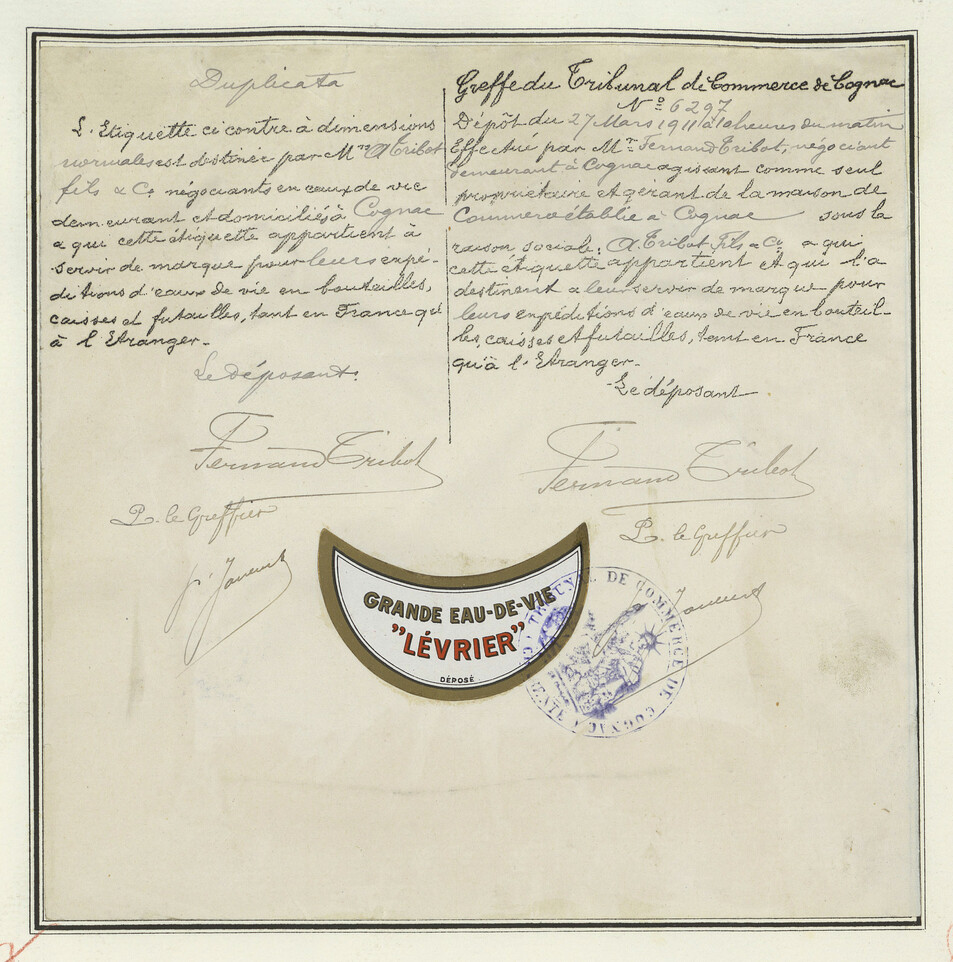 Duplicata
L'Etiquette ci contre à dimensions
normales est destinée par Mrs A Tribot
fils & Co négociants en eaux de vie
demeurant et domiciliés à Cognac
a qui cette étiquette appartient à
servir de marque pour leurs expé-
ditions d'eaux de vie en bouteilles,
caisses et futailles, tant en France qu'
à l'Etranger.
Le déposant.
Fernand Tribot
P. le Greffier
Greffe du Tribunal de Commerce de Cognac
No 6297
Dépôt du 27 Mars 1911 à heures du matin
Effectué par Mr Fernand Tribot, négociant
demeurant à Cognac agissant comme seul
propriétaire et gérant de la maison de
Commerce établie à Cognac sous la
raison sociale: A. Tribot Fils & Co a qui
cette étiquette appartient et qui l'a
destinent a leur servir de marque pour
leurs expéditions d'eaux de vie en bouteil-
les, caisses et futailles, tant en France
qu'à l'Etranger.
Le déposant
Fernand Tribot
P. le Greffier
GRANDE EAU-DE-VIE
"LÉVRIER"
DÉPOSÉ
TRIBUNAL DE COMMERCE DE COGNAC